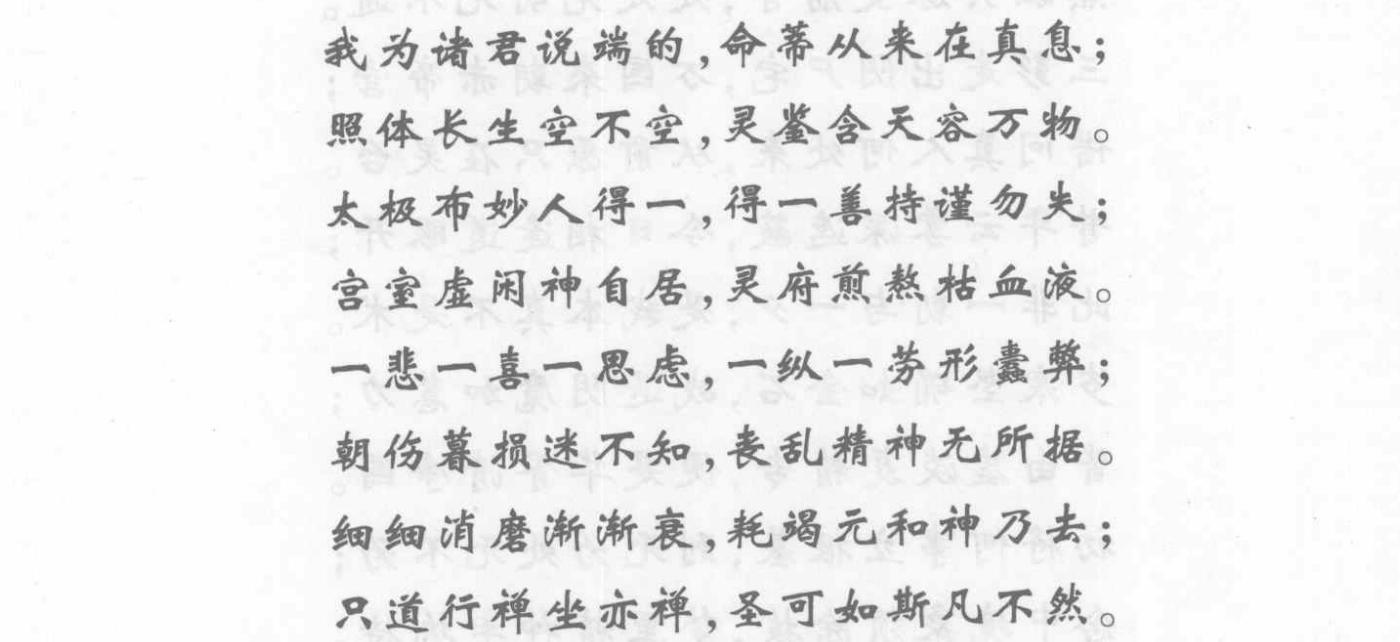 我为诸君说端的，命蒂从来在真息；
照体长生空不空，灵鉴含天容万物。
太极布妙人得一，得一善持谨勿失；
宫室虚闲神自居，灵府煎熬枯血液。
一悲一喜一思虑，一纵一劳形蠹弊；
朝伤暮损迷不知，丧乱精神无所据。
细细消磨渐渐衰，耗竭元和神乃去；
只道行禅坐亦禅，圣可如斯凡不然。